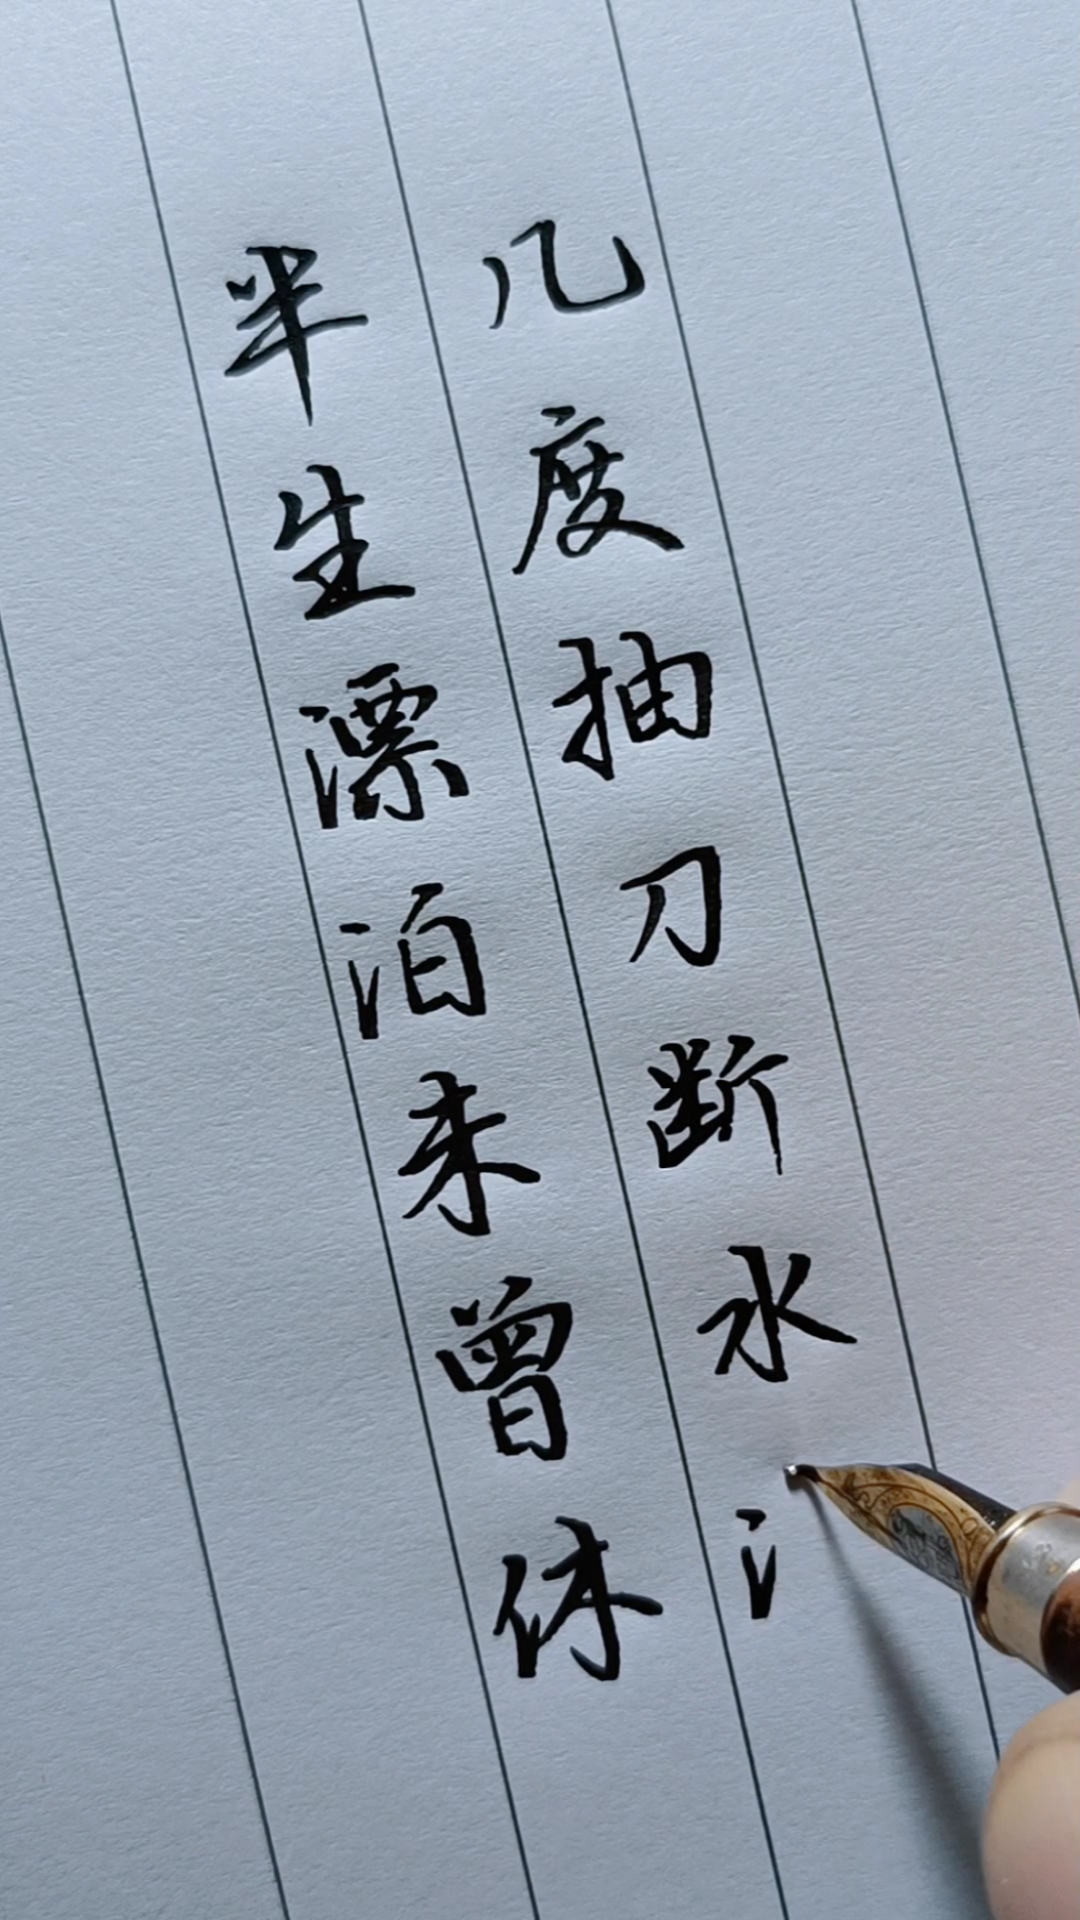 半生漂泊未曾休
几度抽刀断水氵